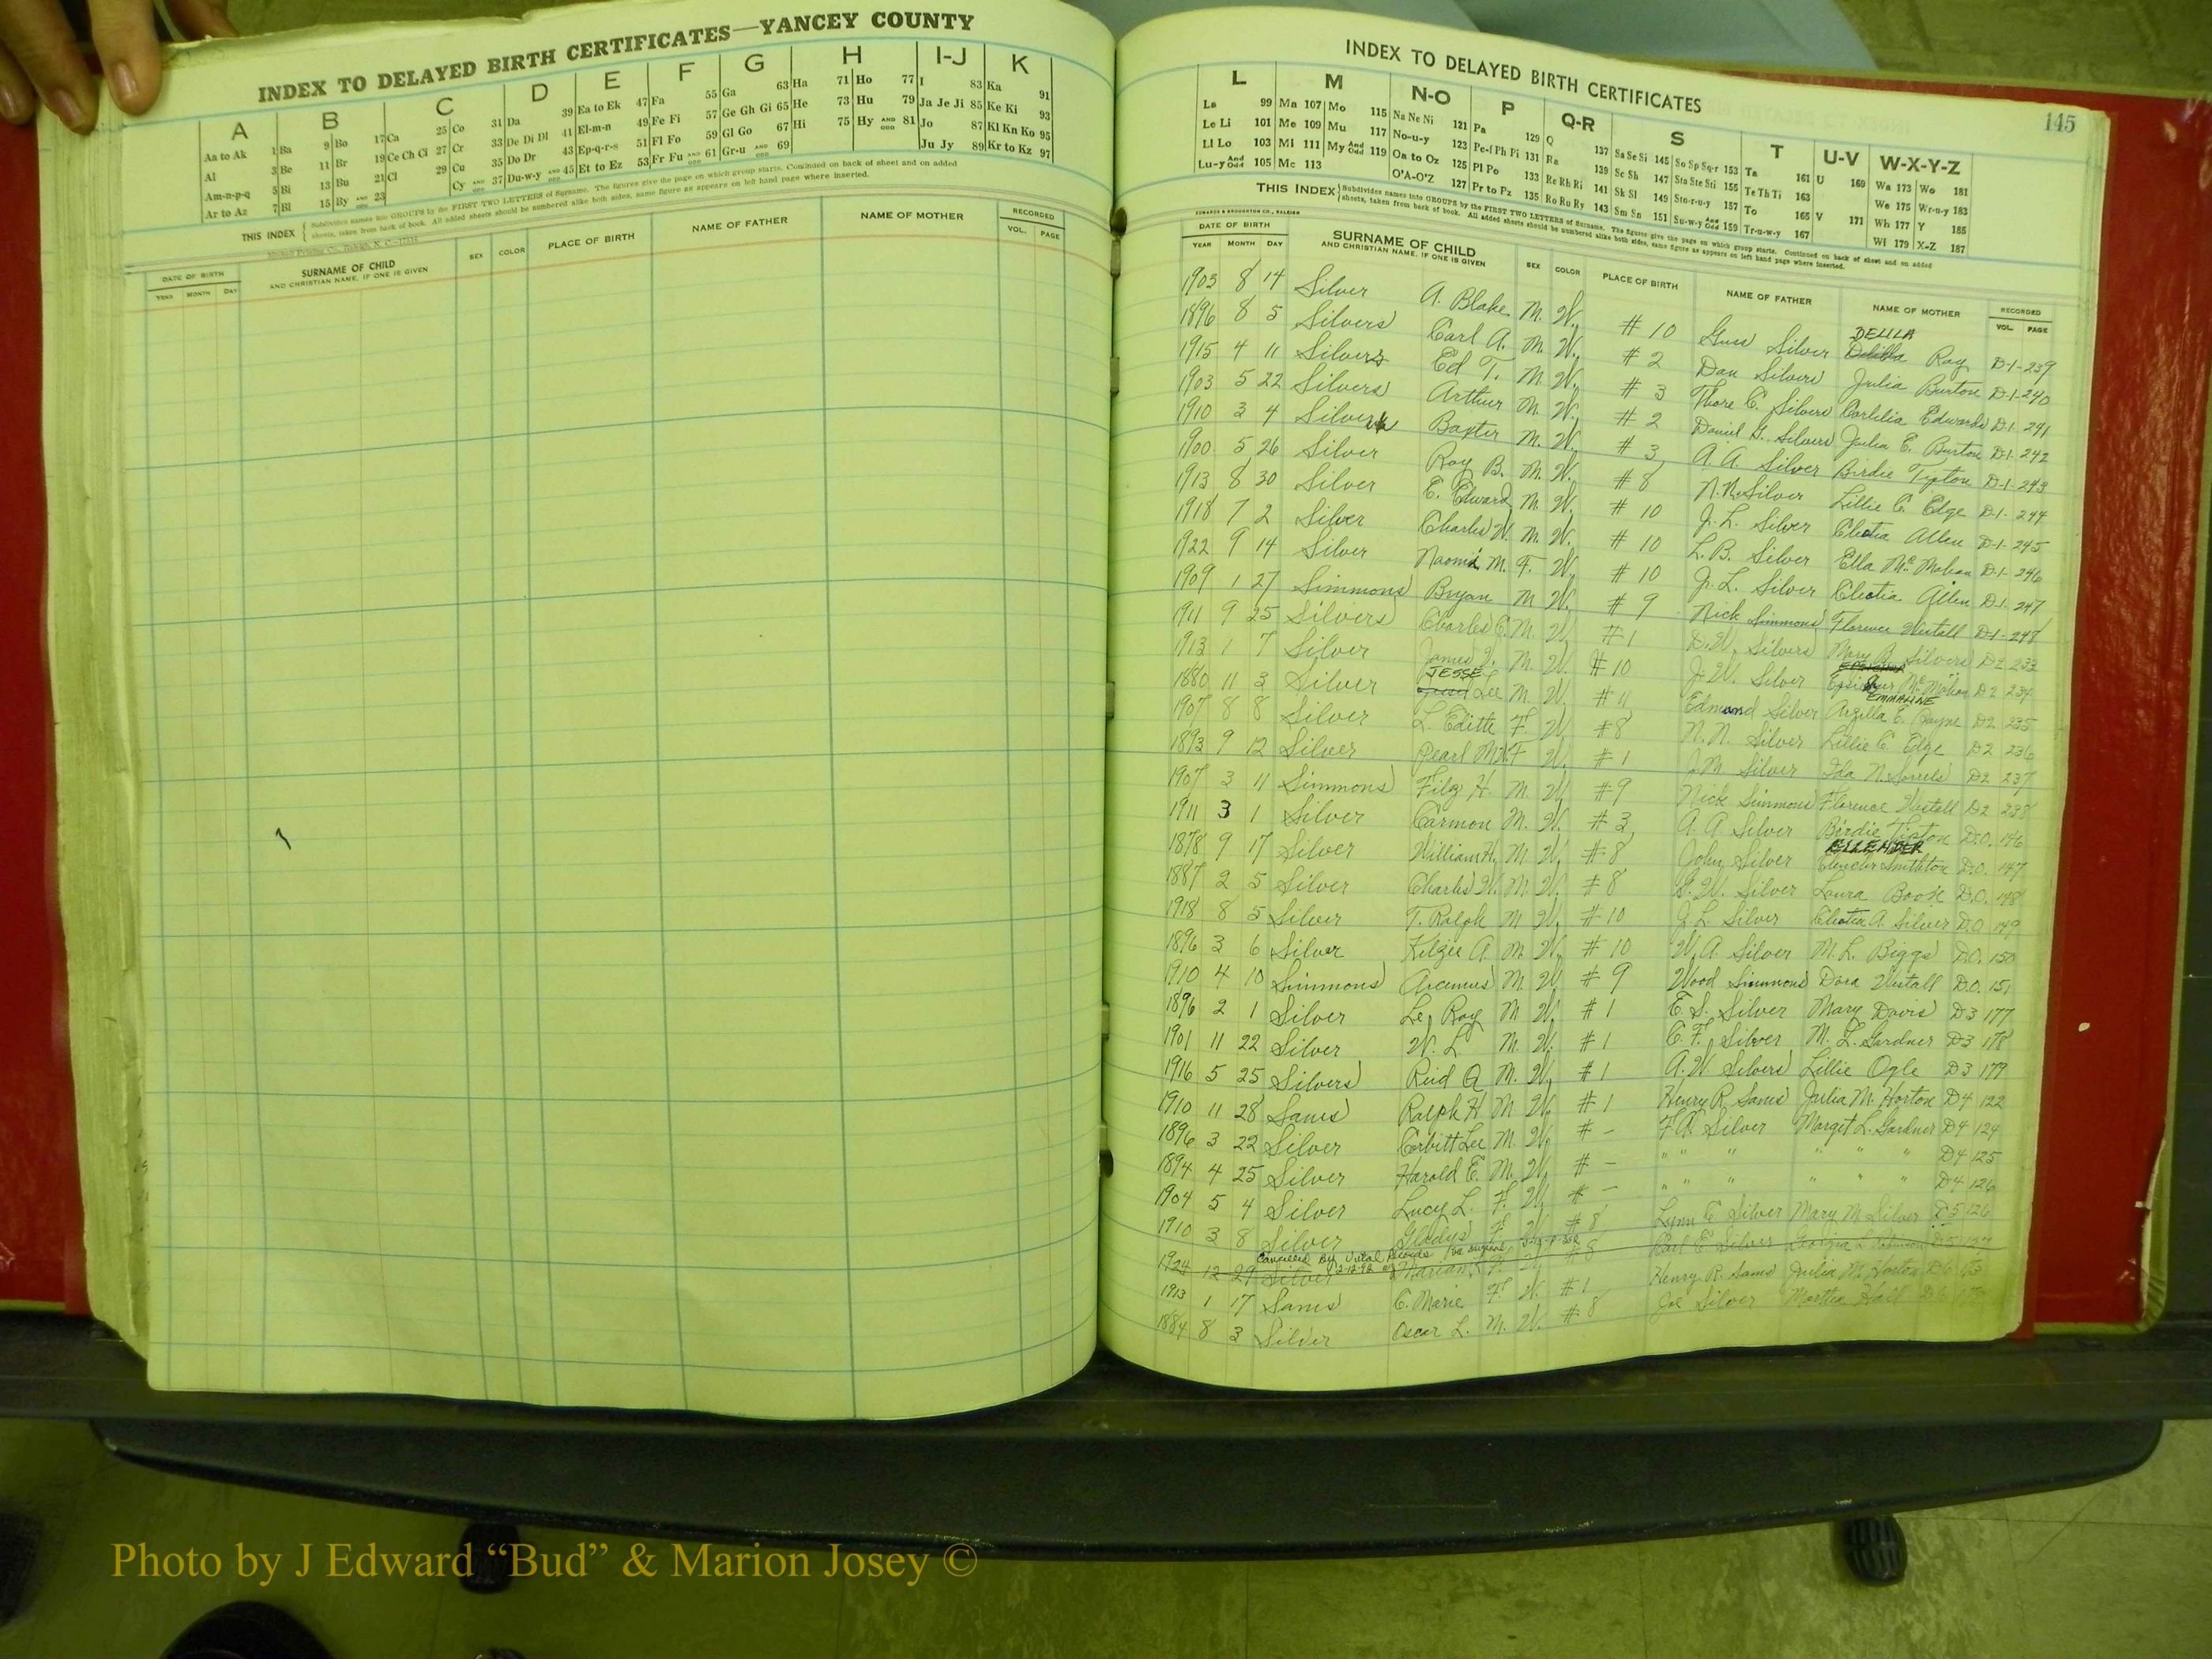 INDEX TO DELAYED BIRTH CERTIFICATES—YANCEY COUNTY
A B C D E F G H I-J K
Aa to Ak 1 Ba 9 Bo 17 Ca 25 Co 31 Da 39 Ea to Ek 47 Fa 55 Ga 63 Ha 71 Ho 77 I 83 Ka 91
Al 3 Be 11 Br 19 Ce Ch Ci 27 Cr 33 De Di Dl 41 El-m-n 49 Fe Fi 57 Ge Gh Gi 65 He 73 Hu 79 Ja Je Ji 85 Ke Ki 93
Am-n-p-q 5 Bi 13 Bu 21 Cl 29 Cu 35 Do Dr 43 Ep-q-r-s 51 Fl Fo 59 Gl Go 67 Hi 75 Hy AND ODD 81 Jo 87 Kl Kn Ko 95
Ar to Az 7 Bl 15 By AND ODD 23 Cy AND ODD 37 Du-w-y AND ODD 45 Et to Ez 53 Fr Fu AND ODD 61 Gr-u AND ODD 69 Ju Jy 89 Kr to Kz 97
THIS INDEX Subdivides names into GROUPS by the FIRST TWO LETTERS of Surname. The figures give the page on which group starts. Continued on back of sheet and on added
sheets, taken from back of book. All added sheets should be numbered alike both sides, same figure as appears on left hand page where inserted.
DATE OF BIRTH SURNAME OF CHILD SEX COLOR PLACE OF BIRTH NAME OF FATHER NAME OF MOTHER RECORDED
YEAR MONTH DAY AND CHRISTIAN NAME, IF ONE IS GIVEN VOL. PAGE
INDEX TO DELAYED BIRTH CERTIFICATES
145
L M N-O P Q-R S T U-V W-X-Y-Z
La 99 Ma 107 Mo 115 Na Ne Ni 121 Pa 129 Q 137 Sa Se Si 145 So Sp Sq-r 153 Ta 161 U 169 Wa 173 Wo 181
Le Li 101 Me 109 Mu 117 No-u-y 123 Pe-f Ph Pi 131 Ra 139 Sc Sh 147 Sta Ste Sti 155 Te Th Ti 163 We 175 Wr-u-y 183
Ll Lo 103 Mi 111 My And Odd 119 Oa to Oz 125 Pl Po 133 Re Rh Ri 141 Sk Sl 149 Sto-r-u-y 157 To 165 V 171 Wh 177 Y 185
Lu-y And Odd 105 Mc 113 O'A-O'Z 127 Pr to Pz 135 Ro Ru Ry 143 Sm Sn 151 Su-w-y And Odd 159 Tr-u-w-y 167 Wi 179 X-Z 187
THIS INDEX Subdivides names into GROUPS by the FIRST TWO LETTERS of Surname. The figures give the page on which group starts. Continued on back of sheet and on added
sheets, taken from back of book. All added sheets should be numbered alike both sides, same figure as appears on left hand page where inserted.
EDWARDS & BROUGHTON CO., RALEIGH
DATE OF BIRTH SURNAME OF CHILD SEX COLOR PLACE OF BIRTH NAME OF FATHER NAME OF MOTHER RECORDED
YEAR MONTH DAY AND CHRISTIAN NAME, IF ONE IS GIVEN VOL. PAGE
1903 8 14 Silver A. Blake M. W. # 10 Guss Silver DELILA Ray D-1-239
1896 8 5 Silvers Carl A. M. W. # 2 Dan Silvers Julia Burton D-1-240
1915 4 11 Silvers Ed T. M. W. # 3 Thore C. Silvers Edwards D-1-241
1903 5 22 Silvers Arthur M. W. # 2 Daniel G. Silvers Julia E. Burton D-1-242
1910 3 4 Silver Baxter M. W. # 3 A. A. Silver Birdie Tipton D-1-243
1900 5 26 Silver Roy B. M. W. # 8 N. N. Silver Lillie C. Edge D-1-244
1913 8 30 Silver E. Edward M. W. # 10 J. L. Silver Cleotia Allen D-1-245
1918 7 2 Silver Charles W. M. W. # 10 L. B. Silver Ella McMahan D-1-246
1922 9 14 Silver Naomi M. F. W. # 10 J. L. Silver Cleotia Allen D-1-247
1909 1 27 Simmons Bryan M W. # 9 Nick Simmons Florence Westall D-1-248
1911 9 25 Silvers Charles C. M. W. # 1 D. W. Silvers Mary B. Silvers D2 233
1913 1 7 Silver James V. M. W. # 10 J. W. Silver McMahan D2 234
1880 11 3 Silver JESSE Lee M. W. # 11 Edmond Silver Argilla E. EMMALINE Payne D2 235
1907 8 8 Silver L. Edith F. W. # 8 N. N. Silver Lillie C. Edge D2 236
1893 9 12 Silver Pearl M. F W. # 1 J. M. Silver Ida N. Sorrels D2 237
1907 3 11 Simmons H. M. W. # 9 Nick Simmons Florence Westall D2 238
1911 3 1 Silver Carmon M. W. # 3 A. A Silver Birdie Tipton D.O. 146
1878 9 17 Silver William H. M. W. # 8 John Silver D.O. 147
1887 2 5 Silver Charles W. M. W. # 8 Silver Laura D.O. 148
1918 8 5 Silver T. Ralph M W. # 10 J. L. Silver Cleotia A. Silver D.O. 149
1896 3 6 Silver A. M. W. # 10 W. A. Silver M. L. Biggs D.O. 150
1910 4 10 Simmons Arcemus M. W # 9 Wood Simmons Dora Westall D.O. 151
1896 2 1 Silver Le Roy M W. # 1 E. S. Silver Mary Davis D3 177
1901 11 22 Silver W. L M. W. # 1 C. F. Silver M. L. Gardner D3 178
1916 5 25 Silvers Reid A M. W. # 1 A. W. Silvers Lillie Ogle D3 179
1910 11 28 Sams Ralph H M W. # 1 Henry R. Sams Julia M. Horton D4 122
1896 3 22 Silver Corbitt Lee M. W. # - Silver Marget L. Gardner D4 124
1894 4 25 Silver Harold E. M. W. # - " " " " " " D4 125
1904 5 4 Silver Lucy L. F. W. # - " " " " " " D4 126
1910 3 8 Silver Gladys F W # 8 Silver Mary M Silver D5 126
Cancelled By Vital Records 12-12-92
1924 12 29 Silver Marian F. W # 8 Silver Georgia L. D5 127
1913 1 17 Sams C. Marie F W. # 1 Henry R. Sams Julia M. Horton
1884 8 3 Silver Oscar L. M. W. # 8 Joe Silver Martha Hall
Photo by J Edward “Bud” & Marion Josey ©